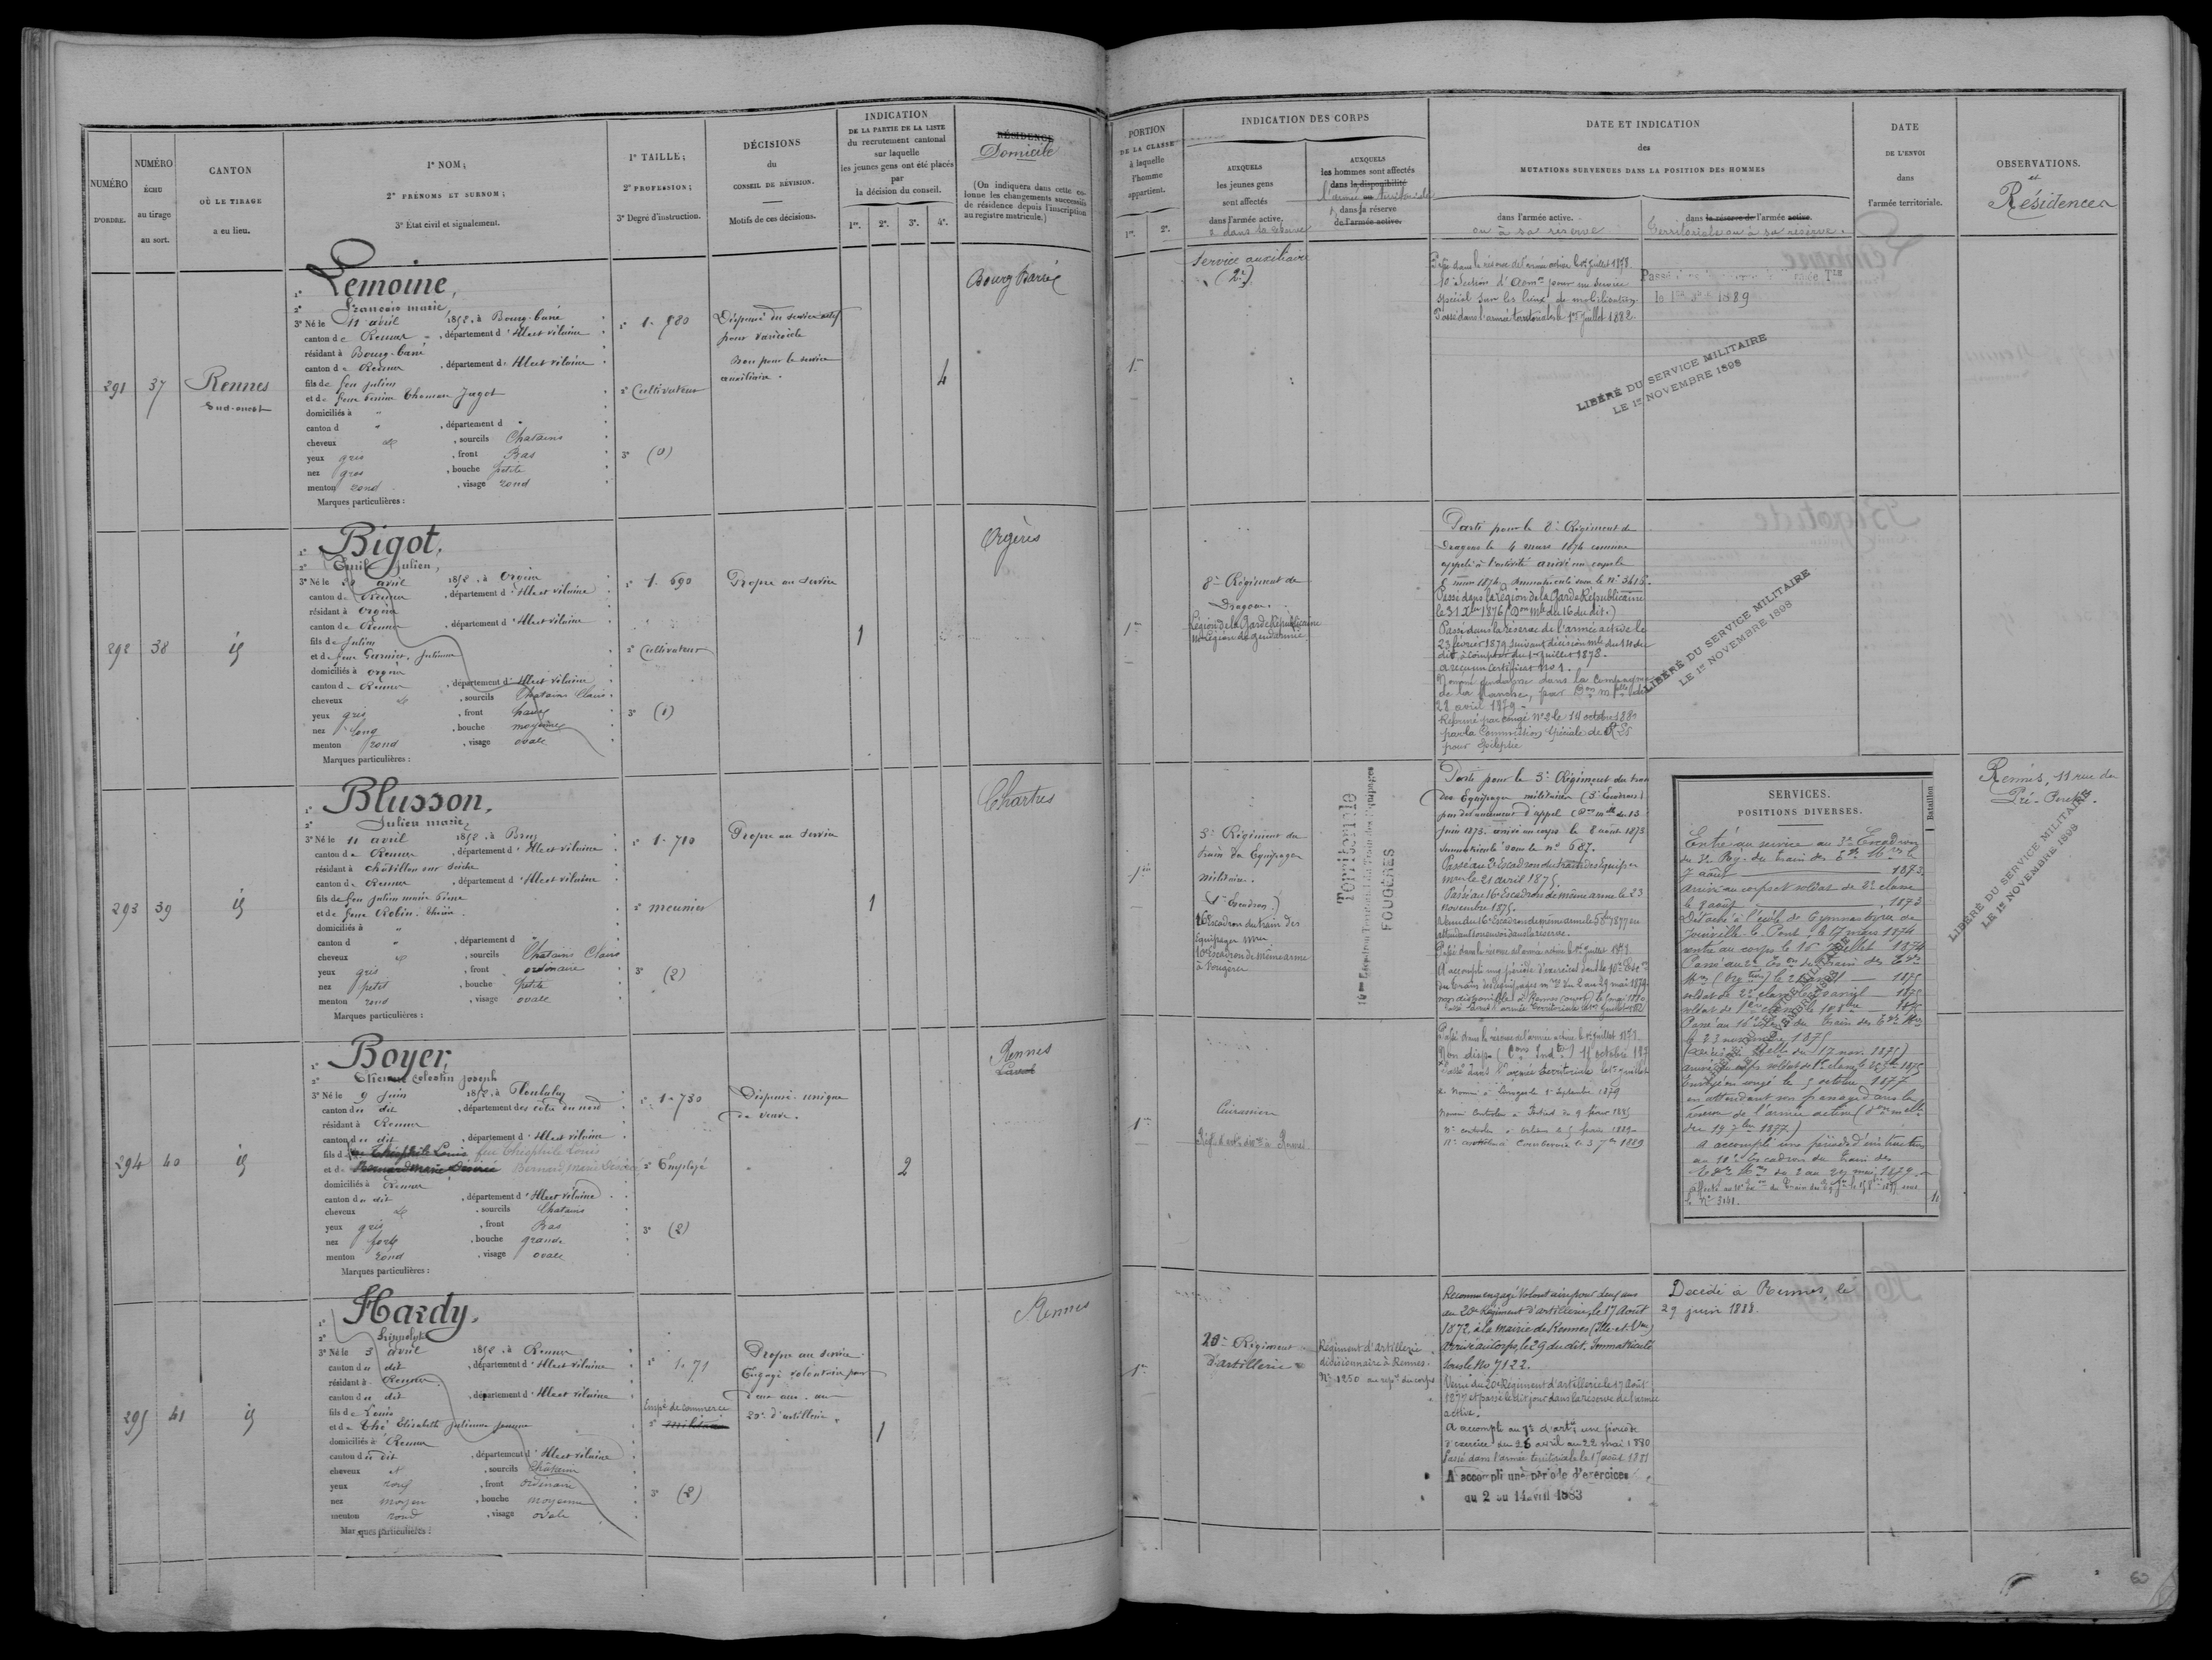 NUMÉRO
D'ORDRE.
NUMÉRO
ÉCHU
au tirage
au sort.
CANTON
OÙ LE TIRAGE
a eu lieu.
1° NOM;
2° PRÉNOMS ET SURNOM;
3° État civil et signalement.
1° TAILLE;
2° PROFESSION;
3° Degré d'instruction.
DÉCISIONS
du
CONSEIL DE RÉVISION.
Motifs de ces décisions.
INDICATION
DE LA PARTIE DE LA LISTE
du recrutement cantonal
sur laquelle
les jeunes gens ont été placés
par
la décision du conseil.
1re. 2e. 3e. 4e.
RÉSIDENCE
Domicile
(On indiquera dans cette co-
lonne les changements successifs
de résidence depuis l'inscription
au registre matricule.)
291
37
Rennes
Sud-ouest
1° Lemoine,
2° François marie,
3° Né le 11 avril 1852, à Bourg-barré
canton de Rennes, département d'Ille et vilaine
résidant à Bourg-barré
canton de Rennes, département d'Ille et vilaine
fils de feu Julien
et de feue Perrine Thomase Jagot
domiciliés à "
canton d " , département d "
cheveux et , sourcils Chatains
yeux gris , front Bas
nez gros , bouche petite
menton rond , visage rond
Marques particulières :
1° 1.680
2° Cultivateur
3° (0)
Dispensé du service actif
pour varicocèle
Bon pour le service
auxiliaire.
4
Bourg Barré
292
38
id
1° Bigot,
2° Emile Julien,
3° Né le avril 1852, à Orgères
canton de Rennes, département d'Ille et vilaine
résidant à Orgères
canton de Rennes, département d'Ille et vilaine
fils de Julien
et de feue Garnier, Julienne
domiciliés à Orgères
canton de Rennes, département d'Ille et vilaine
cheveux et , sourcils Chatains Clairs
yeux gris , front haut
nez long , bouche moyenne
menton rond , visage ovale
Marques particulières :
1° 1.690
2° Cultivateur
3° (1)
Propre au service
1
Orgères
293
39
id
1° Blusson,
2° Julien marie,
3° Né le 11 avril 1852, à Bruz
canton de Rennes, département d'Ille et vilaine
résidant à châtillon sur seiche
canton de Rennes, département d'Ille et vilaine
fils de feu Julien marie Pierre
et de feue Robin
domiciliés à "
canton d " , département d "
cheveux et , sourcils Chatains Clairs
yeux gris , front ordinaire
nez petit , bouche petite
menton rond , visage ovale
Marques particulières :
1° 1.710
2° meunier
3° (2)
Propre au service
1
Chartres
294
40
id
1° Boyer,
2° Etienne celestin joseph
3° Né le 9 juin 1852, à
canton du dit , département des côtes du nord
résidant à Rennes
canton du dit , département d'Ille et vilaine
fils de feu Théophile Louis feu Théophile Louis
et de Bernard marie Désirée Bernard marie Désirée
domiciliés à Rennes
canton du dit , département d'Ille et vilaine
cheveux et , sourcils Chatains
yeux gris , front Bas
nez fort , bouche grande
menton rond , visage ovale
Marques particulières :
1° 1.730
2° Employé
3° (2)
Dispensé. unique
de veuve.
2
Rennes
Laval
295
41
id
1° Hardy,
2° Hippolyte
3° Né le 3 avril 1852, à Rennes
canton du dit , département d'Ille et vilaine
résidant à Rennes
canton du dit , département d'Ille et vilaine
fils de Louis
et de Thé Elisabeth Julienne jeanne
domiciliés à Rennes
canton du dit , département d'Ille et vilaine
cheveux et , sourcils châtains
yeux roux , front ordinaire
nez moyen , bouche moyenne
menton rond , visage ovale
Marques particulières :
1° 1.71
Empé de commerce
2° militaire
3° (2)
Propre au service
Engagé volontaire pour
deux ans au
20e d'artillerie
1
Rennes
PORTION
DE LA CLASSE
à laquelle
l'homme
appartient.
1re. 2e.
INDICATION DES CORPS
AUXQUELS
les jeunes gens
sont affectés
dans l'armée active.
2 dans la réserve
AUXQUELS
les hommes sont affectés
dans la disponibilité
l'armée territoriale
dans la réserve
de l'armée active.
DATE ET INDICATION
des
MUTATIONS SURVENUES DANS LA POSITION DES HOMMES
dans l'armée active.
ou à sa réserve
dans la réserve de l'armée active.
territoriale ou à sa réserve.
DATE
DE L'ENVOI
dans
l'armée territoriale.
OBSERVATIONS.
et
Résidences
1re
Service auxiliaire
(2e)
Passé dans la réserve de l'armée active le 1er juillet 1878.
10e Section d' pour un service
spécial sur les lieux de mobilisation
Passé dans l'armée territoriale le 1er juillet 1882
1889
LIBÉRÉ DU SERVICE MILITAIRE
LE 1er NOVEMBRE 1898
1re
8e Régiment de
Dragons.
Légion de la Garde Républicaine
Légion de gendarmie
Parti pour le 8e Régiment de
Dragons le 4 mars 1874 comme
appelé à l'activité arrivé au corps le
5 mars 1874, Immatriculé sous le n° 3415.
Passé dans la légion de la Garde Républicaine
le 31 Xbre 1876 (Don mlle du 16 du dit.)
Passé dans la réserve de l'armée active le
23 février 1879 suivant décision mle du 14 du
dit à compter du 1er juillet 1878.
a reçu un certificat No 1.
Nommé gendarme dans la compagnie
de la Manche, par
28 avril 1879.
Réformé par congé N° 2 le 14 octobre 1881
par la Commission spéciale de
pour épilepsie
LIBÉRÉ DU SERVICE MILITAIRE
LE 1er NOVEMBRE 1898
1re
3e Régiment du
train des Equipages
militaires.
(1er Escadron.)
16e Escadron du train des
équipages mres
10e Escadron de même arme
à Fougères
Territoriale
10me Escadron Territorial du Train des Equipages
FOUGÈRES
Parti pour le 3e Régiment du train
des Equipages militaires (3e Escadron)
par devancement d'appel (Don mlle du 13
juin 1873. arrivé au corps le 8 août 1873
immatriculé sous le n° 687.
Passé au 2e Escadron du train des équipages
mres le 21 avril 1875.
Passé au 16e Escadron de même arme le 23
novembre 1875.
Venu du 16e Escadron de même arme le 5 8bre 1877 en
attendant son envoi dans la réserve.
Passé dans la réserve de l'armée active le 1er juillet 1878.
A accompli une période d'exercices dans le 10e Escon
du train des équipages mres du 2 au 29 mai 1879
non disponible
Passé dans l'armée territoriale le 1er juillet 1882
SERVICES.
POSITIONS DIVERSES.
Bataillon
Entré au service au 3e Escadron
du 3e Rg. du train des Eq. Mres le
7 août 1873.
Arrivé au corps et soldat de 2e classe
le 8 août 1873
Détaché à l'école de Gymnastique de
Joinville-le-Pont, le 17 mars 1874
rentré au corps le 16 juillet 1874
Passé au 2e Eson du train des Eq.
Mres le 21 avril 1875
soldat de 2e classe avril 1875
soldat de 1ère classe le 10 8bre 1875
Passé au 16e du train des Eq. Mres
le 23 novembre 1875
(décision Mlle du 17 nov. 1875)
arrivé au corps soldat de 1e classe le 1875
Envoyé en congé le 5 octobre 1877
en attendant son passage dans la
réserve de l'armée active (don mlle
du 19 7bre 1877)
a accompli une période d'instruction
au 10e Escadron du train des
Eqes Mres du 2 au 29 mai 1879
le N° 3141.
Rennes, 11 rue du
Pré-Perché.
LIBÉRÉ DU SERVICE MILITAIRE
LE 1er NOVEMBRE 1898
1re
Cuirassiers
Passé dans la réserve de l'armée active le 1er juillet 1878.
Non dispe 15 octobre 187
Passé dans l'armée territoriale le 1er juillet
Nommé à 1er Septembre 1879
Nommé Controleur à du 9 février 1885
Dt controleur à Orléans le 5 février 1889
Dt controleur à Courbevoie le 3 7bre 1889
1re
20e Régiment
d'artillerie
Régiment d'artillerie
divisionnaire à Rennes.
N° 1250 au repre du corps
Reconnu engagé Volontaire pour deux ans
au 20e Régiment d'artillerie, le 17 Août
1872, à la mairie de Rennes (Ille-et-Vne)
Arrivé au Corps, le 29 du dit. Immatriculé
sous le No 7122.
Venu du 20e Régiment d'artillerie le 17 août
1877 et passé le dit jour dans la réserve de l'armée
active.
A accompli au 7e d'arte une période
d'exercice du 26 avril au 22 mai 1880
Passé dans l'armée territoriale le 17 août 1881
A accompli une période d'exercices
du 2 au 14 avril 1883
Décédé à Rennes, le
29 juin 1888.
60